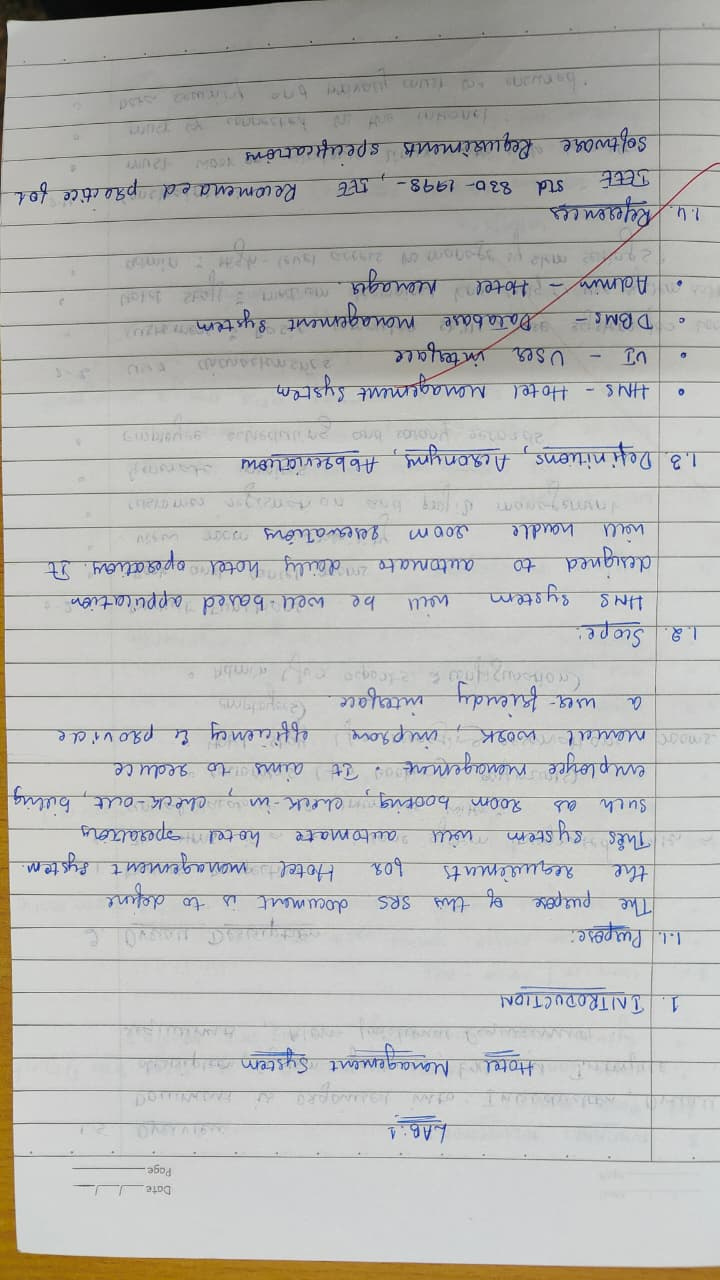 Date
Page
LAB:1
Hotel Management System
1. INTRODUCTION
1.1. Purpose:
The purpose of this SRS document is to define
the requirements for Hotel Management System.
This System will automate hotel operations
such as room booking, check-in, check-out, billing,
employee management. It aims to reduce
manual work, improve efficiency & provide
a user-friendly interface.
1.2. Scope:
HMS System will be web-based application
designed to automate daily hotel operations. It
will handle room reservations
1.3. Definitions, Acronyms, Abbreviations
• HMS - Hotel Management System
• UI - User interface
• DBMS - Database Management System
• Admin - Hotel Manager.
1.4. References
IEEE Std 830-1998-, IEE Recomended practice for
Software Requirements specifications